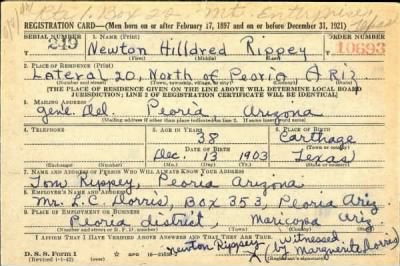 REGISTRATION CARD—(Men born on or after February 17, 1897 and on or before December 31, 1921)
SERIAL NUMBER 1. NAME (Print) ORDER NUMBER
249 Newton Hilldred Rippey 10693
2. PLACE OF RESIDENCE (Print)
Lateral 20, North of Peoria Ariz.
[THE PLACE OF RESIDENCE GIVEN ON THE LINE ABOVE WILL DETERMINE LOCAL BOARD
JURISDICTION; LINE 2 OF REGISTRATION CERTIFICATE WILL BE IDENTICAL]
3. MAILING ADDRESS
Gen. Del. Peoria Arizona
[Mailing address if other than place indicated on line 2. If same insert word same]
4. TELEPHONE 5. AGE IN YEARS 6. PLACE OF BIRTH
38 Carthage
DATE OF BIRTH
Dec. 13 1903 Texas
(Exchange) (Number) (Mo.) (Day) (Yr.) (State or country)
7. NAME AND ADDRESS OF PERSON WHO WILL ALWAYS KNOW YOUR ADDRESS
Tom Rippey, Peoria Arizona
8. EMPLOYER'S NAME AND ADDRESS
Mr. L.C. Dorris, Box 353, Peoria Ariz.
9. PLACE OF EMPLOYMENT OR BUSINESS
Peoria district, Maricopa Ariz.
I AFFIRM THAT I HAVE VERIFIED ABOVE ANSWERS AND THAT THEY ARE TRUE.
D. S. S. Form 1 Newton Rippey Witnessed
(Revised 1-1-42) (by Marguerite Dorris)